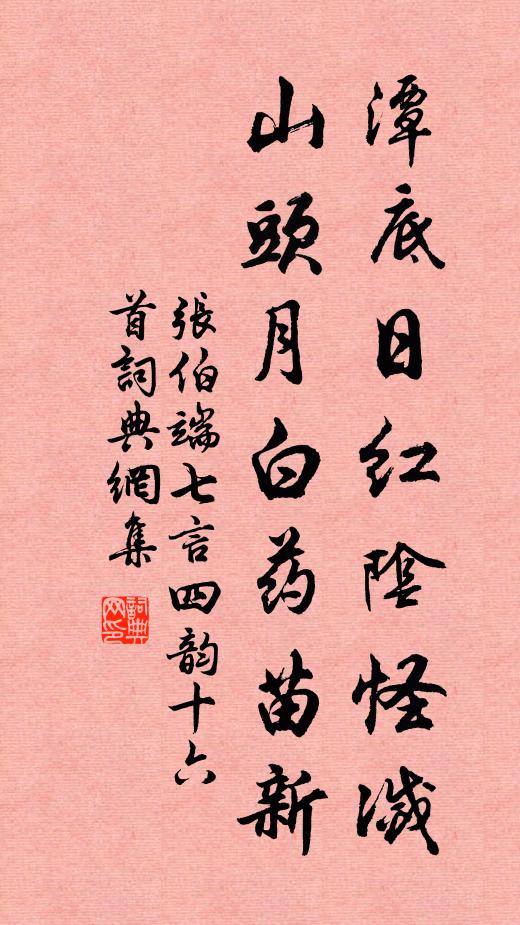 潭底日红陰怪滅
山頭月白药苗新
張伯端七言四韵十六
首詞典網集
詞典网印